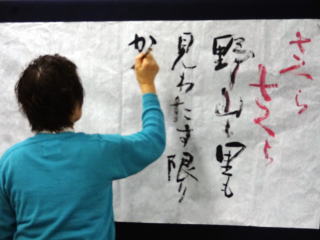 さくら
さくら
野山も里も
見わたす限り
か